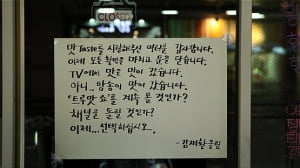 CLOSED
맛 Taste를 사랑해주신 여러분 감사합니다.
이제 모든 촬영을 마치고 문을 닫습니다.
TV에서 맛은 맛이 갔습니다.
아니.. 방송이 맛이 갔습니다.
'트루맛 쇼'를 계속 볼 것인가?
채널을 돌릴 것인가?
이제... 선택하십시오.
- 김재환 올림